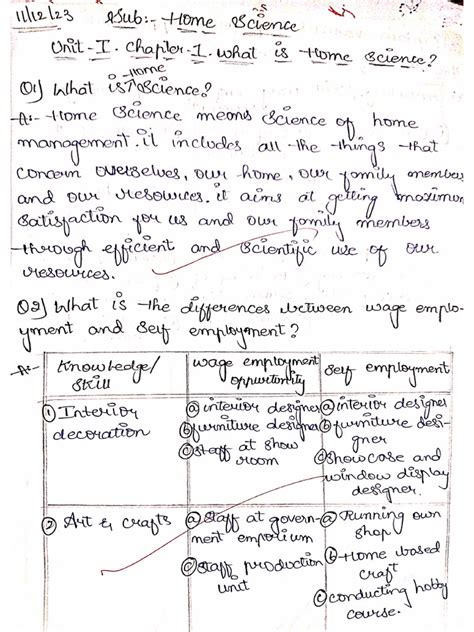 11/12/23 Sub:- Home Science
Unit-I. Chapter-1. what is Home Science?
Q1) What is Home Science?
A:- Home Science means Science of home
management. it includes all the things that
concern ourselves, our home, our family members
and our resources. it aims at getting maximum
Satisfaction for us and our family members
through efficient and Scientific use of our
resources.
Q2) What is the differences between wage emplo-
yment and Self employment?
A:-
Knowledge/ Skill
wage employment opportunity
Self employment
① Interior decoration
ⓐ interior designer
ⓑ furniture designer
ⓒ Staff at show room
ⓐ interior designer
ⓑ furniture desi-
gner
ⓒ Showcase and
window display
designer.
② Art & crafts
ⓐ Staff at govern-
ment emporium
ⓒ Staff production
unit
ⓐ Running own
Shop
ⓑ Home based
craft
ⓒ conducting hobby
course.